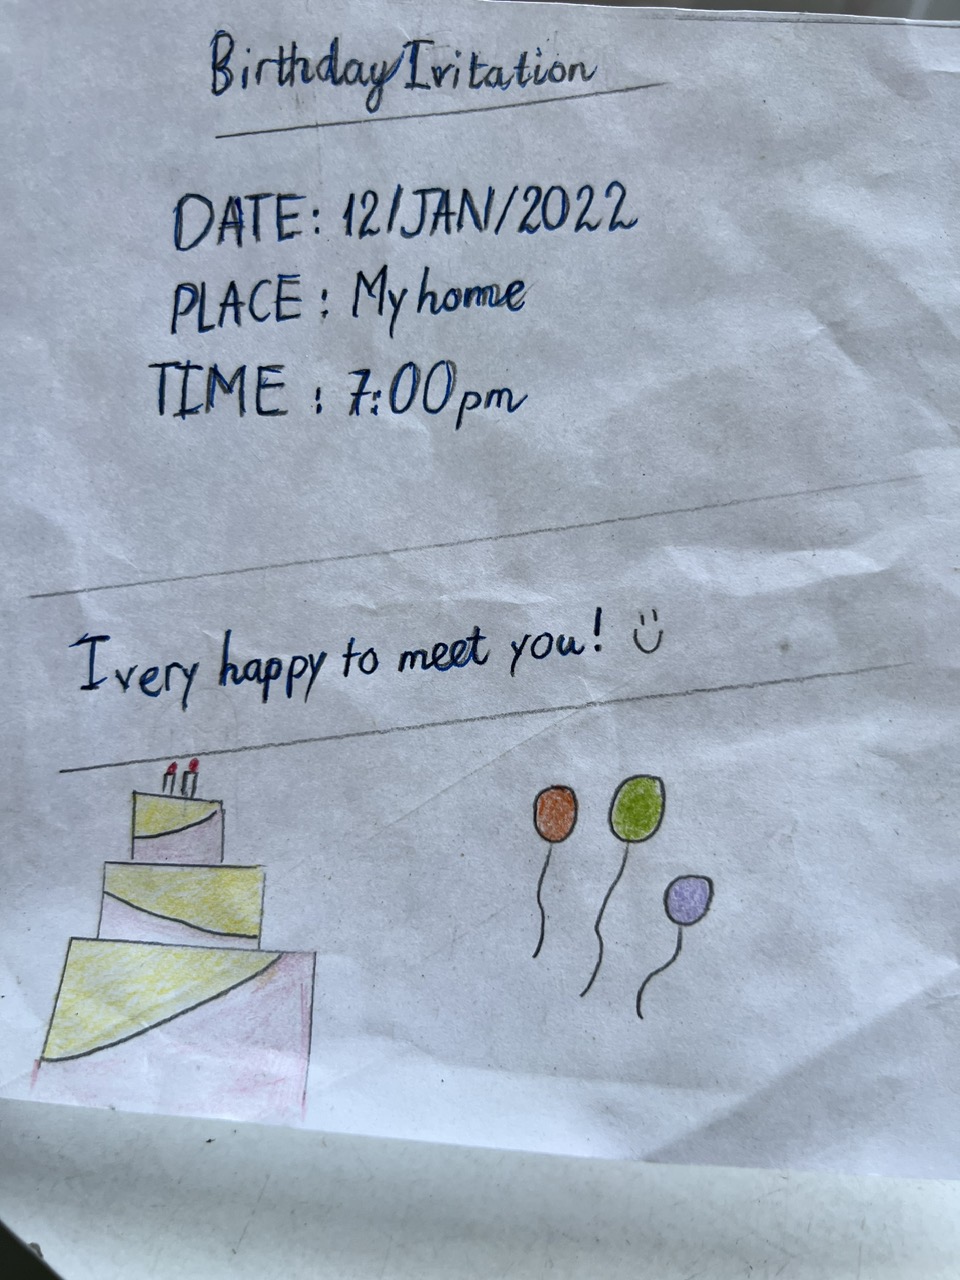 Birthday Iritation
DATE: 12/JAN/2022
PLACE: My home
TIME: 7:00pm
I very happy to meet you! :)